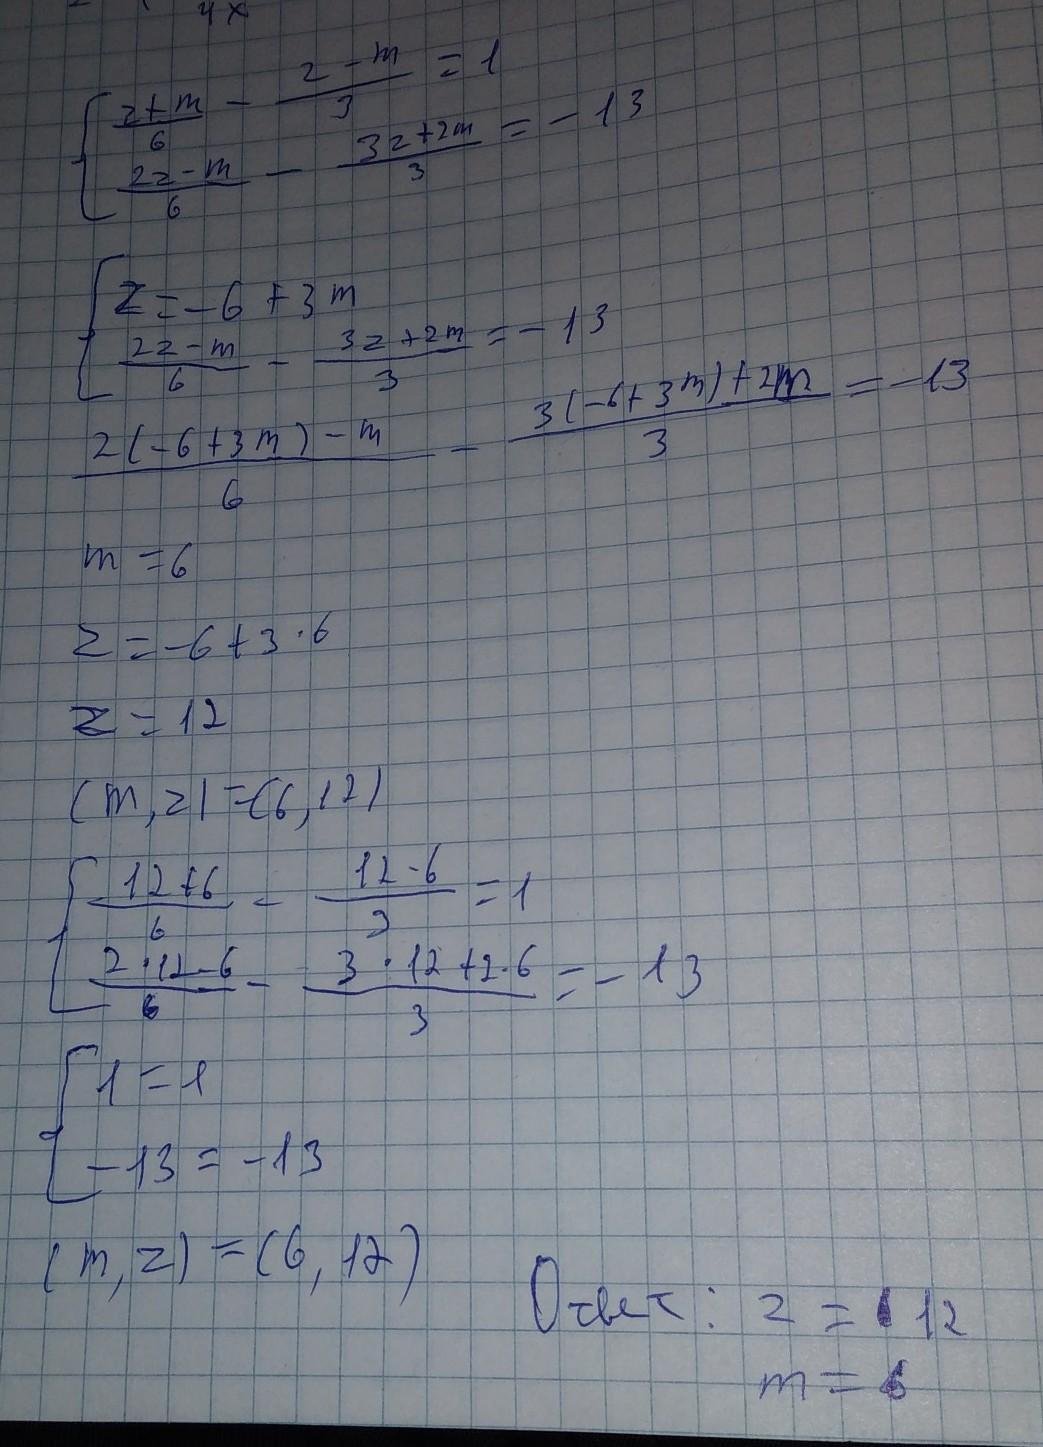 4x
{ (z+m)/6 - (z-m)/3 = 1
(2z-m)/6 - (3z+2m)/3 = -13
{ z = -6 + 3m
(2z-m)/6 - (3z+2m)/3 = -13
(2(-6+3m)-m)/6 - (3(-6+3m)+2m)/3 = -13
m = 6
z = -6 + 3·6
z = 12
(m,z) = (6,12)
{ (12+6)/6 - (12-6)/3 = 1
(2·12-6)/6 - (3·12+2·6)/3 = -13
{ 1 = 1
-13 = -13
(m,z) = (6,12)
Ответ: z = 12
m = 6